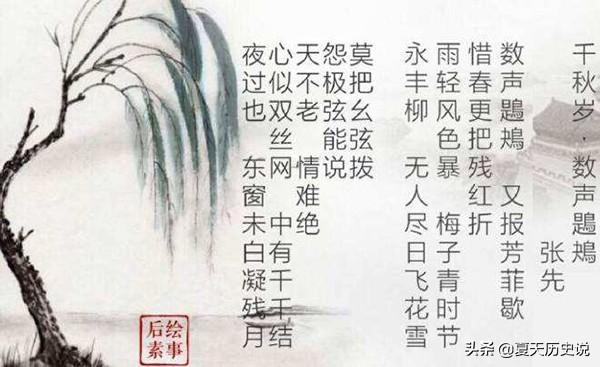 千秋岁·数声鶗鴂
张先
数声鶗鴂 又报芳菲歇
惜春更把残红折
雨轻风色暴 梅子青时节
永丰柳 无人尽日飞花雪
莫把幺弦拨
怨极弦能说
天不老 情难绝
心似双丝网 中有千千结
夜过也 东窗未白凝残月
绘事
后素
头条 @夏天历史说